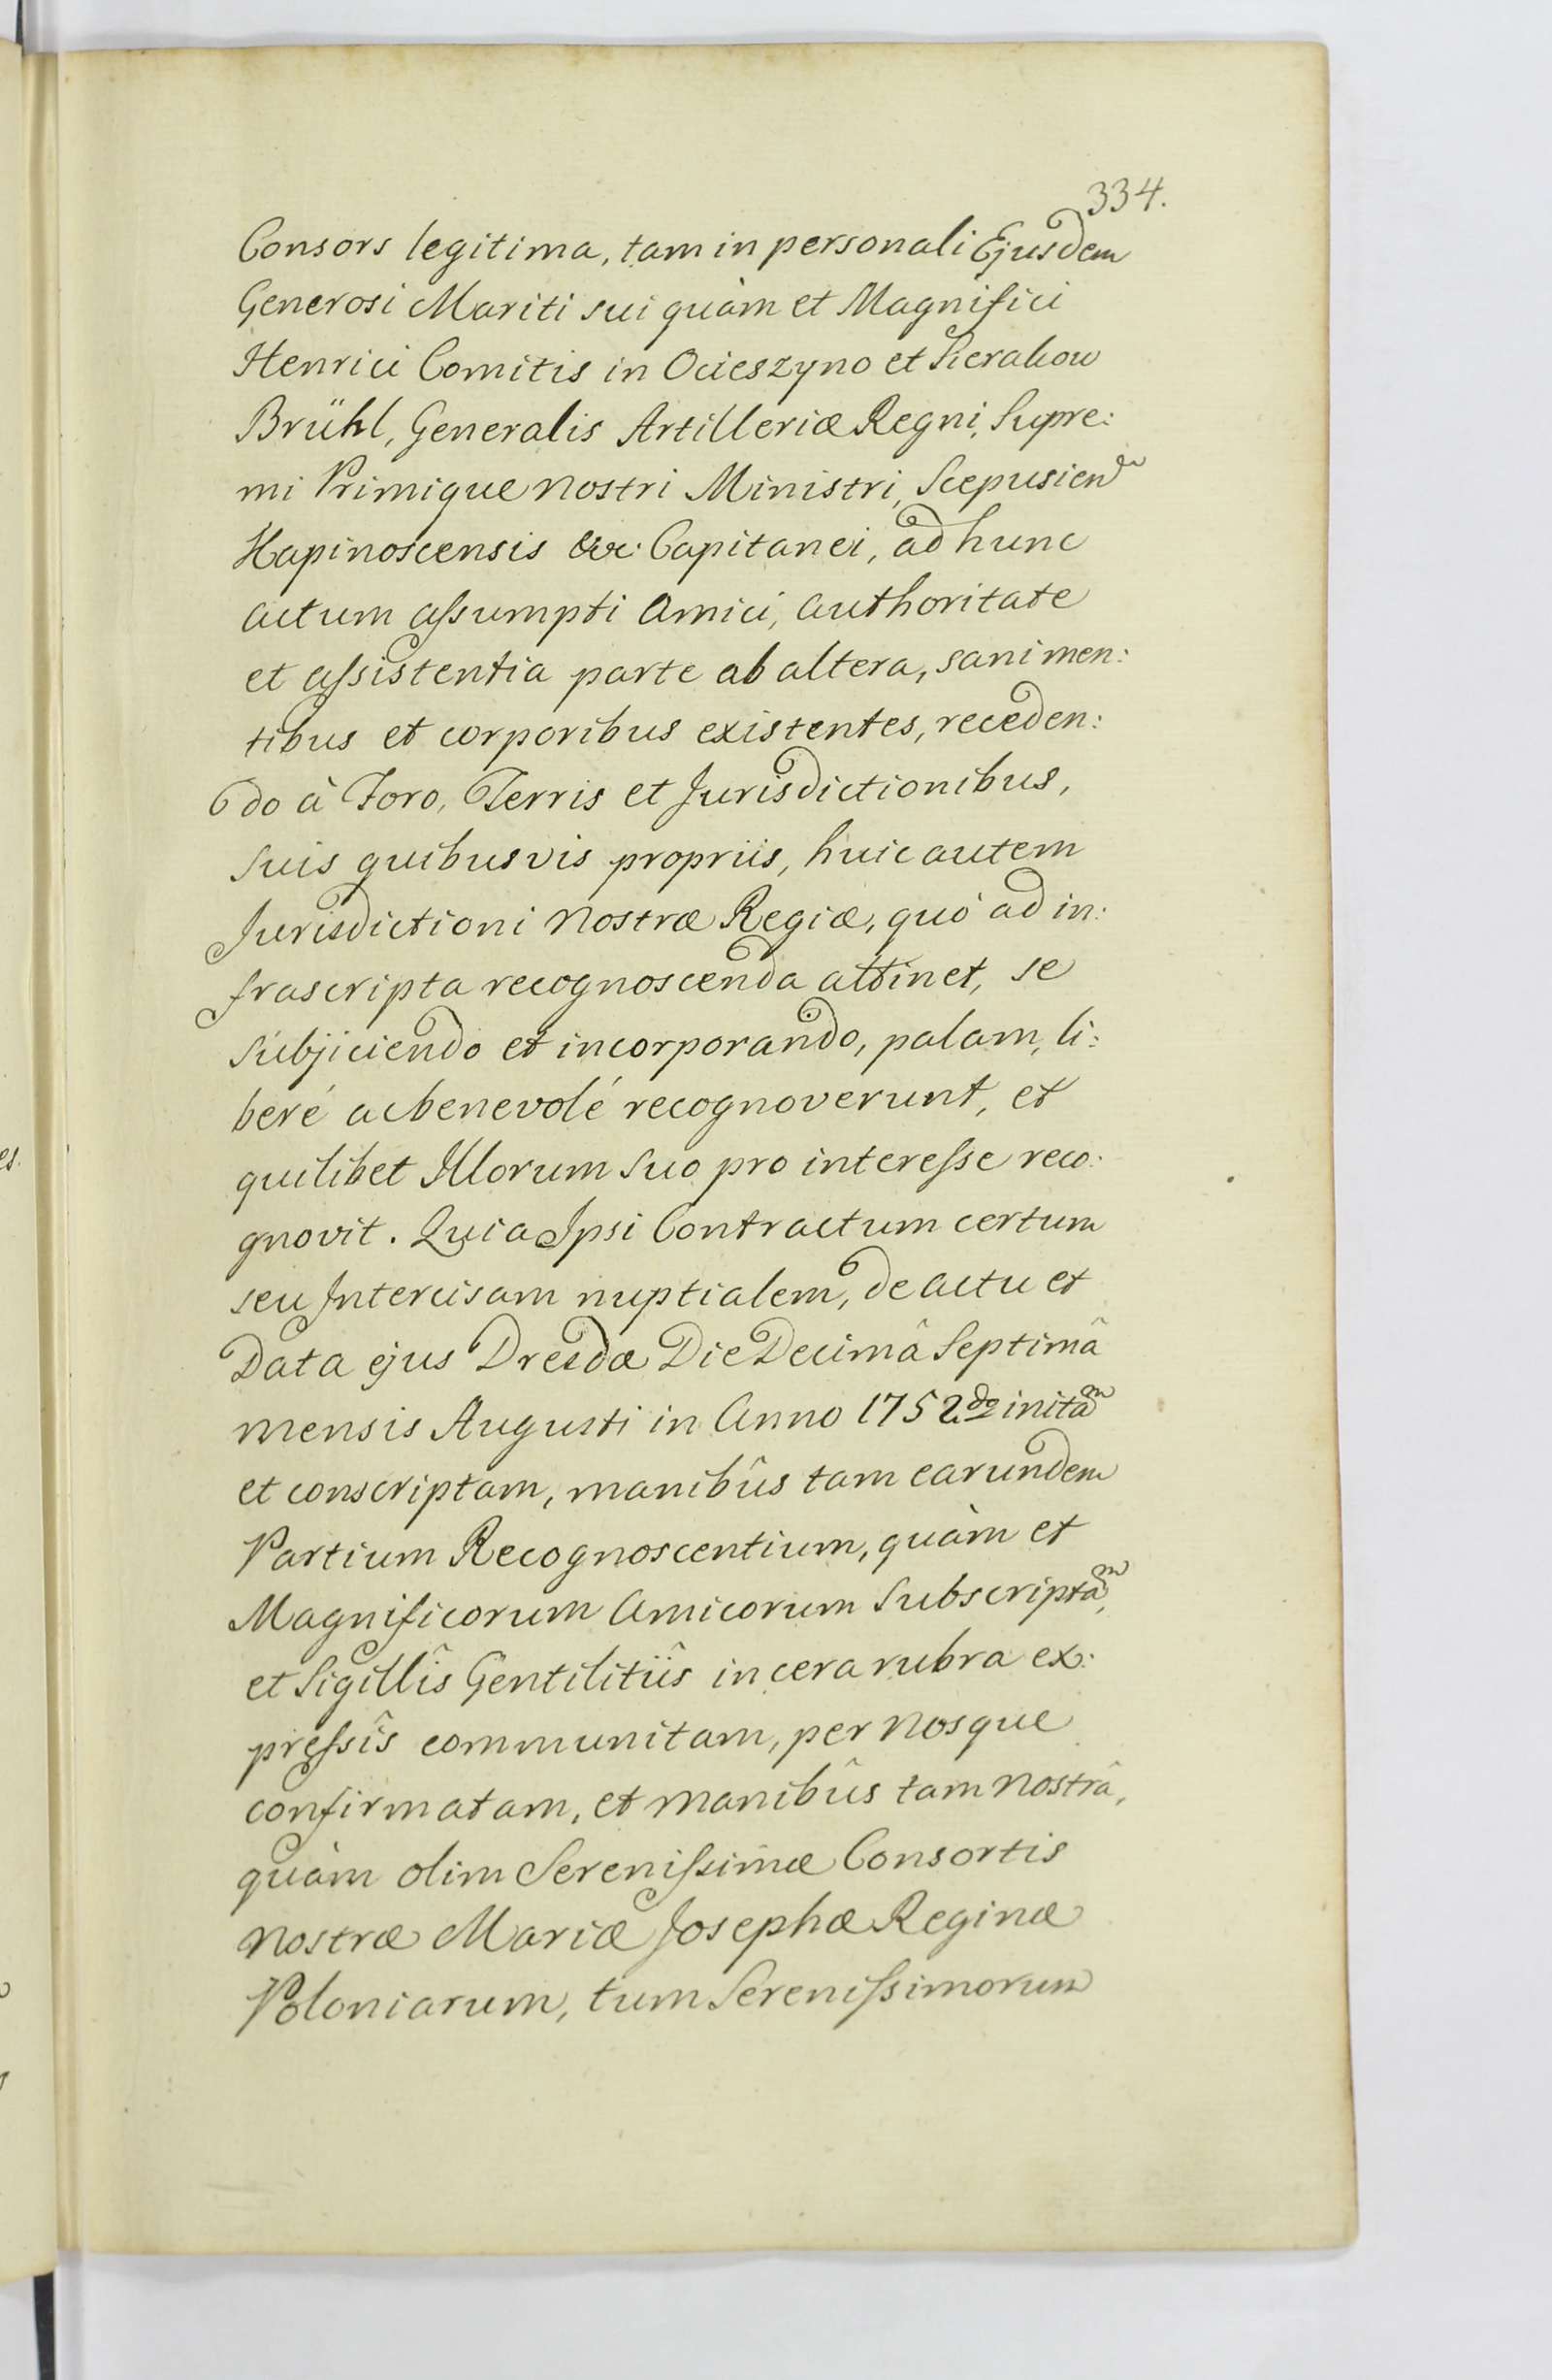 334.
Consors legitima, tam in personali Ejusdem
Generosi Mariti sui quàm et Magnifici
Henrici Comitis in Ocieszyno et Sierakow
Brühl, Generalis Artilleriæ Regni, Supre:
mi Primique nostri Ministri, Scepusien
Hapinoscensis &c: Capitanei, ad hunc
actum assumpti Amici, authoritate
et assistentia parte ab altera, sani men:
tibus et corporibus existentes, receden:
do à Foro, Terris et Jurisdictionibus,
suis quibusvis propriis, huic autem
Jurisdictioni nostræ Regiæ, quò ad in:
frascripta recognoscenda attinet, se
subjiciendo et incorporando, palam, li:
beré ac benevolé recognoverunt, et
quilibet Illorum suo pro interesse reco:
gnovit. Quia Ipsi Contractum certum
seu Intercisam nuptialem, de actu et
Data ejus Dresdæ Die Decimâ Septimâ
mensis Augusti in Anno 1752do initam
et conscriptam, manibûs tam earundem
Partium Recognoscentium, quàm et
Magnificorum Amicorum subscriptam,
et Sigillîs Gentilitiîs in cera rubra ex:
pressîs communitam, per nosque
confirmatam, et manibûs tam nostrâ,
quàm olim Serenissimæ Consortis
nostræ Mariæ Josephæ Reginæ
Poloniarum, tum Serenissimorum